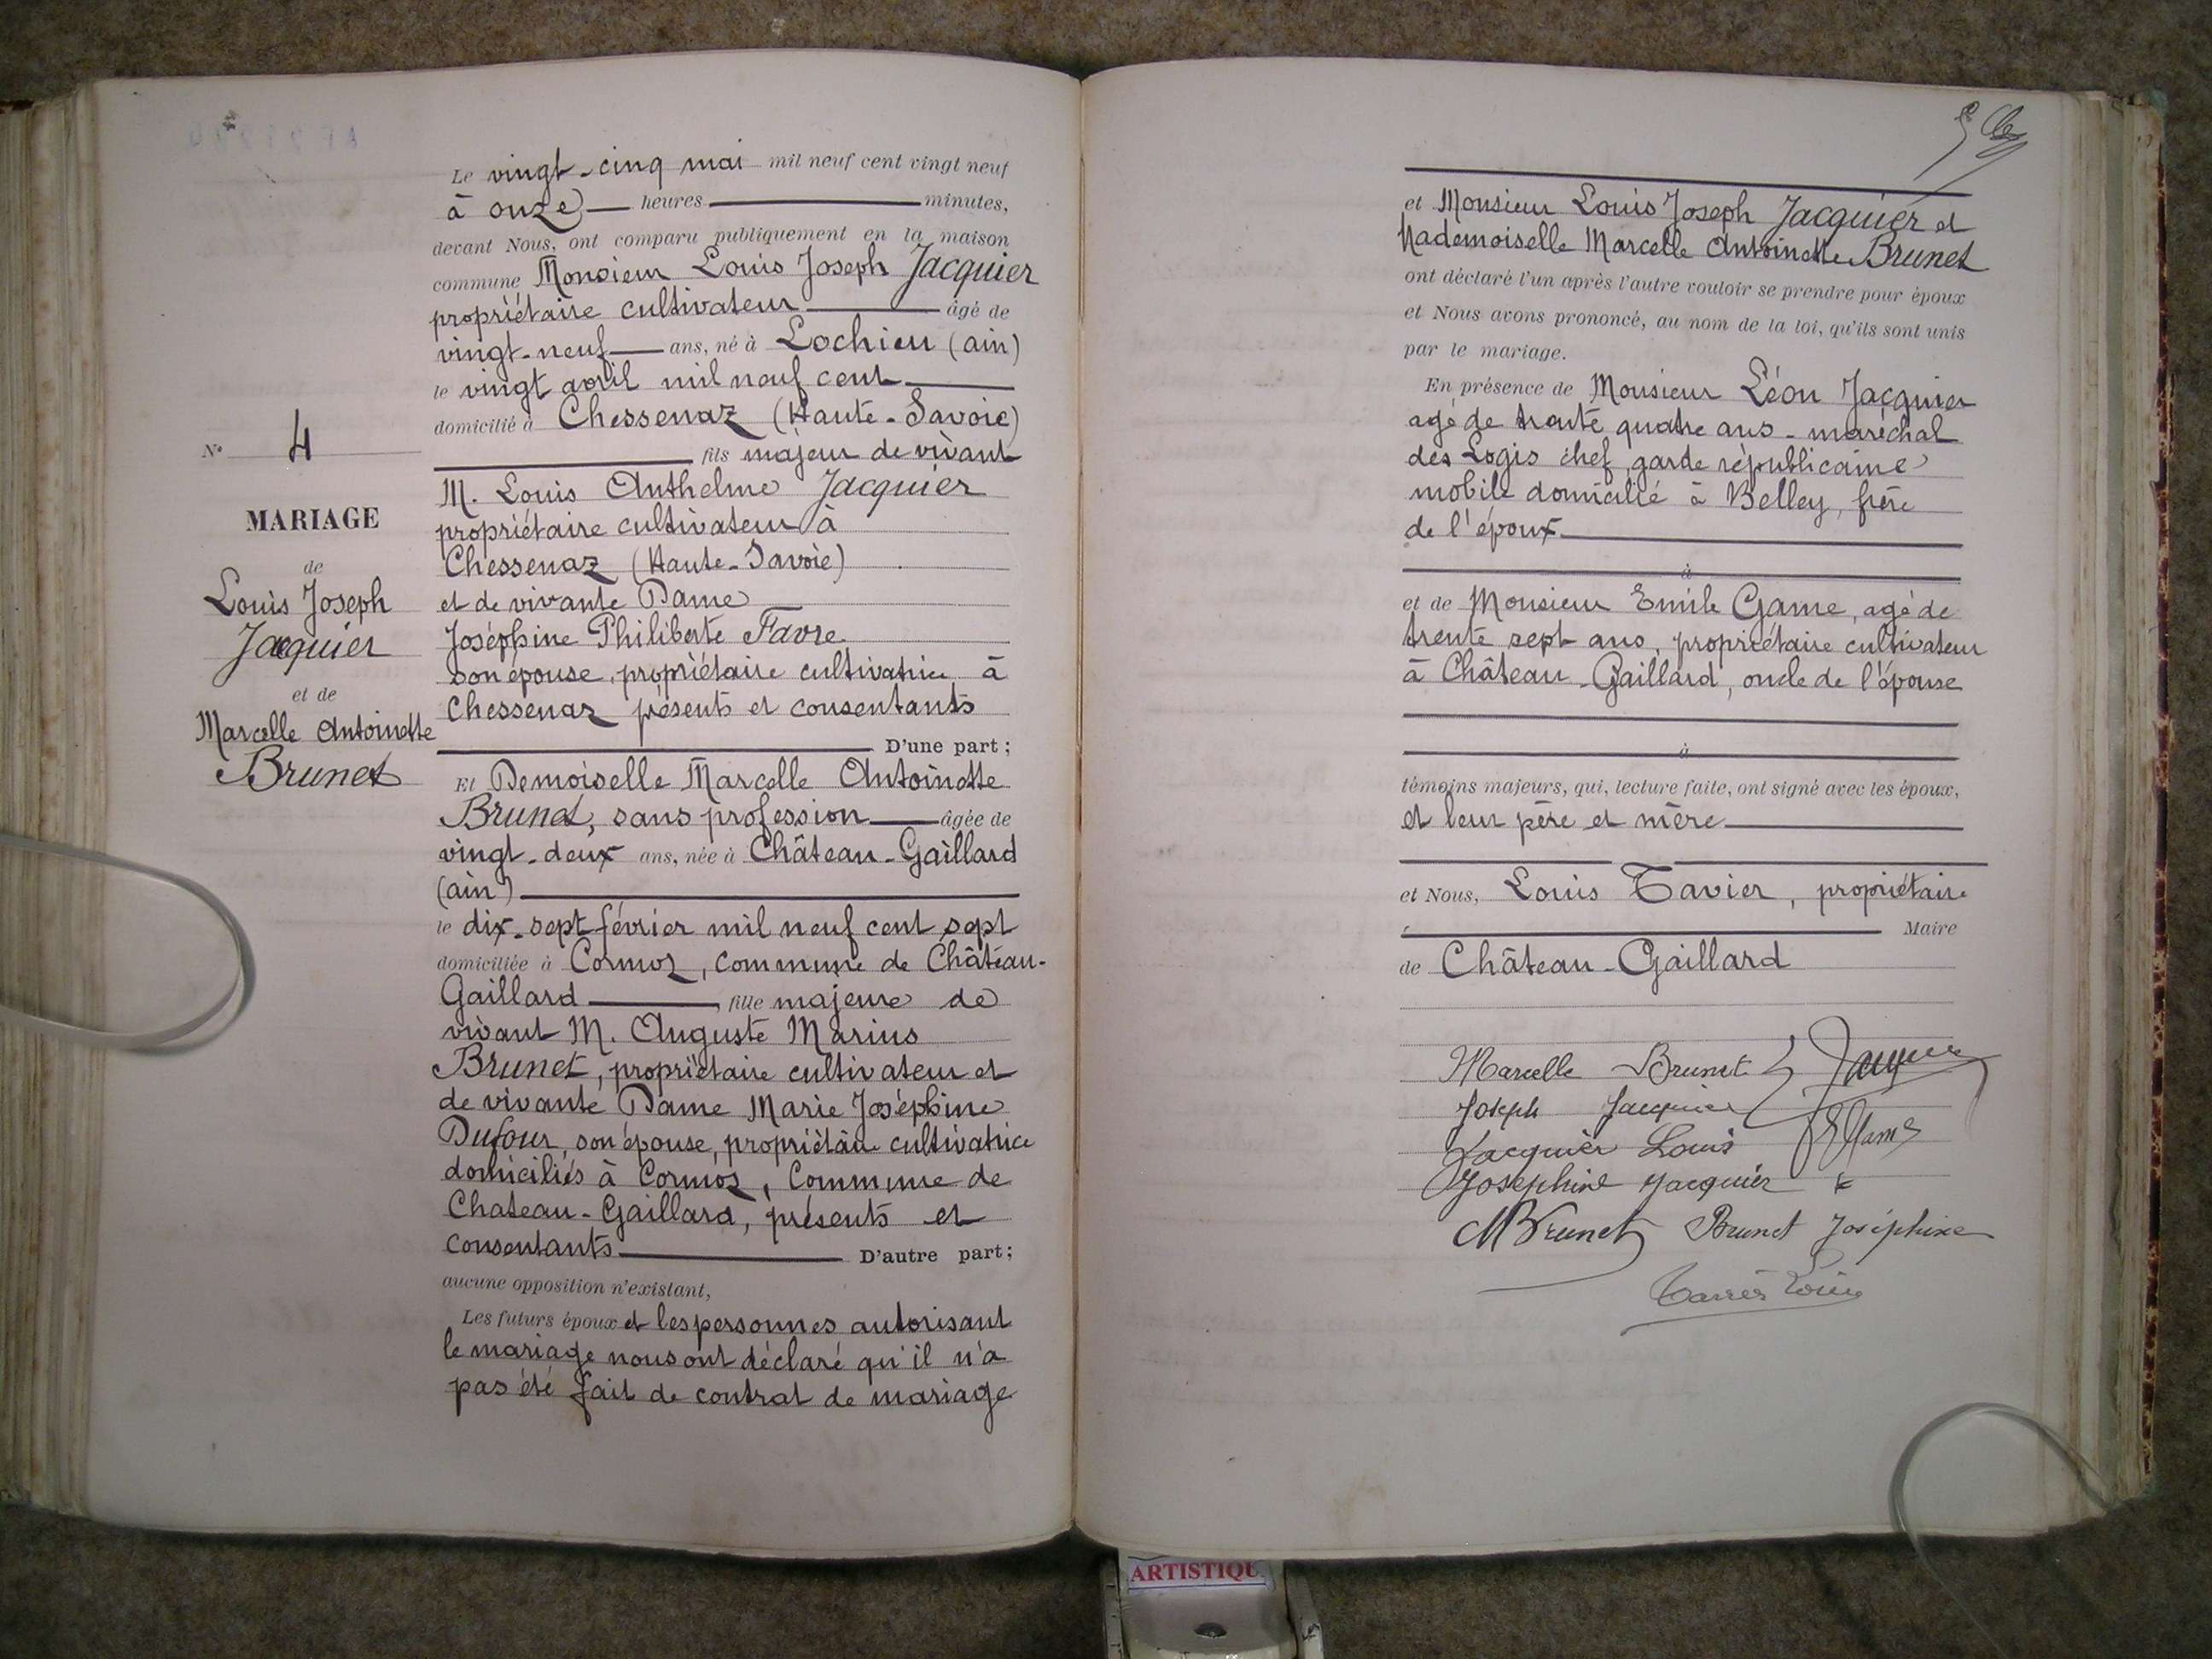 N° 4
MARIAGE
de
Louis Joseph
Jacquier
et de
Marcelle Antoinette
Brunet
Le vingt-cinq mai mil neuf cent vingt neuf
à onze heures minutes,
devant Nous, ont comparu publiquement en la maison
commune Monsieur Louis Joseph Jacquier
propriétaire cultivateur âgé de
vingt-neuf ans, né à Lochieu (ain)
le vingt avril mil neuf cent
domicilié à Chessenaz (Haute-Savoie)
fils majeur de vivant
M. Louis Anthelme Jacquier
propriétaire cultivateur à
Chessenaz (Haute-Savoie)
et de vivante Dame
Joséphine Philiberte Favre
son épouse, propriétaire cultivatrice à
Chessenaz présents et consentants
D'une part;
Et Demoiselle Marcelle Antoinette
Brunet, sans profession âgée de
vingt-deux ans, née à Château-Gaillard
(ain)
le dix-sept février mil neuf cent sept
domiciliée à Cormoz, commune de Château-
Gaillard, fille majeure de
vivant M. Auguste Marius
Brunet, propriétaire cultivateur et
de vivante Dame Marie Joséphine
Dufour, son épouse, propriétaire cultivatrice
domiciliés à Cormoz, Commune de
Chateau-Gaillard, présents et
consentants D'autre part;
aucune opposition n'existant,
Les futurs époux et les personnes autorisant
le mariage nous ont déclaré qu'il n'a
pas été fait de contrat de mariage
et Monsieur Louis Joseph Jacquier et
Mademoiselle Marcelle Antoinette Brunet
ont déclaré l'un après l'autre vouloir se prendre pour époux
et Nous avons prononcé, au nom de la loi, qu'ils sont unis
par le mariage.
En présence de Monsieur Léon Jacquier
agé de trente quatre ans - maréchal
des Logis chef, garde républicaine
mobile domicilié à Belley, frère
de l'époux
à
et de Monsieur Emile Game, agé de
trente sept ans, propriétaire cultivateur
à Château-Gaillard, oncle de l'épouse
à
témoins majeurs, qui, lecture faite, ont signé avec les époux,
et leur père et mère
et Nous, Louis Tavier, propriétaire
Maire
de Château-Gaillard
Marcelle Brunet Jacquier
Joseph Jacquier
Jacquier Louis EGame
Josephine Jacquier
MBrunet Brunet Joséphine
Tavier Louis
ARTISTIQU